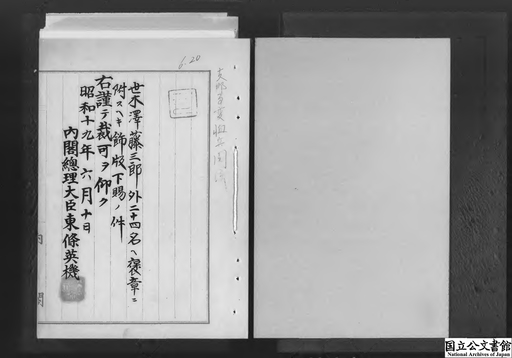 6.20
世木澤藤三郎外二十四名ヘ褒章ニ
附スヘキ飾版下賜ノ件
右謹テ裁可ヲ仰ク
昭和十九年六月十日
內閣總理大臣東條英機
国立公文書館
National Archives of Japan